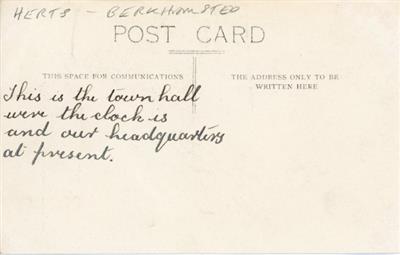 HERTS - BERKHAMSTED
POST CARD
THIS SPACE FOR COMMUNICATIONS
THE ADDRESS ONLY TO BE
WRITTEN HERE
This is the town hall
were the clock is
and our headquarters
at present.